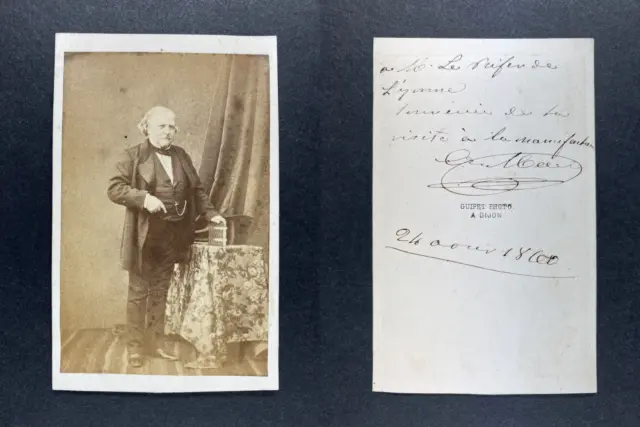 a M. Le Préfet de
L'yonne
Souvenir de sa
visite à la manufacture
GUIPET PHOTO.
A DIJON
24 aout 1860